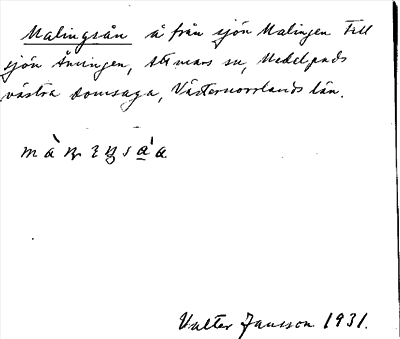 Malingsån å från sjön Malingen till
sjön Anningen, Attmars sn, Medelpads
västra domsaga, Västernorrlands län.
Valter Jansson 1931.